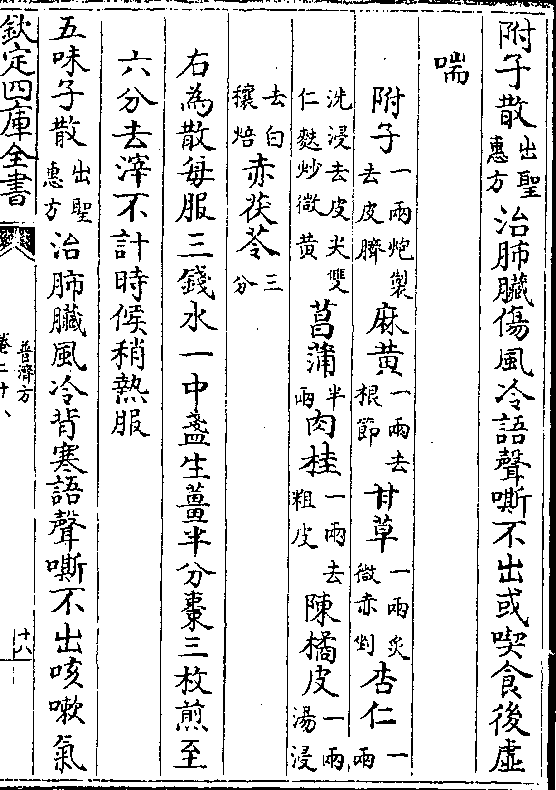 附子散出聖惠方治肺臟傷風冷語聲嘶不出或喫食後虛
喘
附子一兩炮製去皮臍麻黄一兩去根節甘草一兩炙微赤剉杏仁一兩
洗浸去皮尖雙仁麩炒微黄菖蒲半兩肉桂一兩去粗皮陳橘皮一兩湯浸
去白穰焙赤茯苓三分
右為散每服三錢水一中盞生薑半分棗三枚煎至
六分去滓不計時候稍熱服
五味子散出聖惠方治肺臟風冷背寒語聲嘶不出咳嗽氣
欽定四庫全書
普濟方
卷二十八
十八